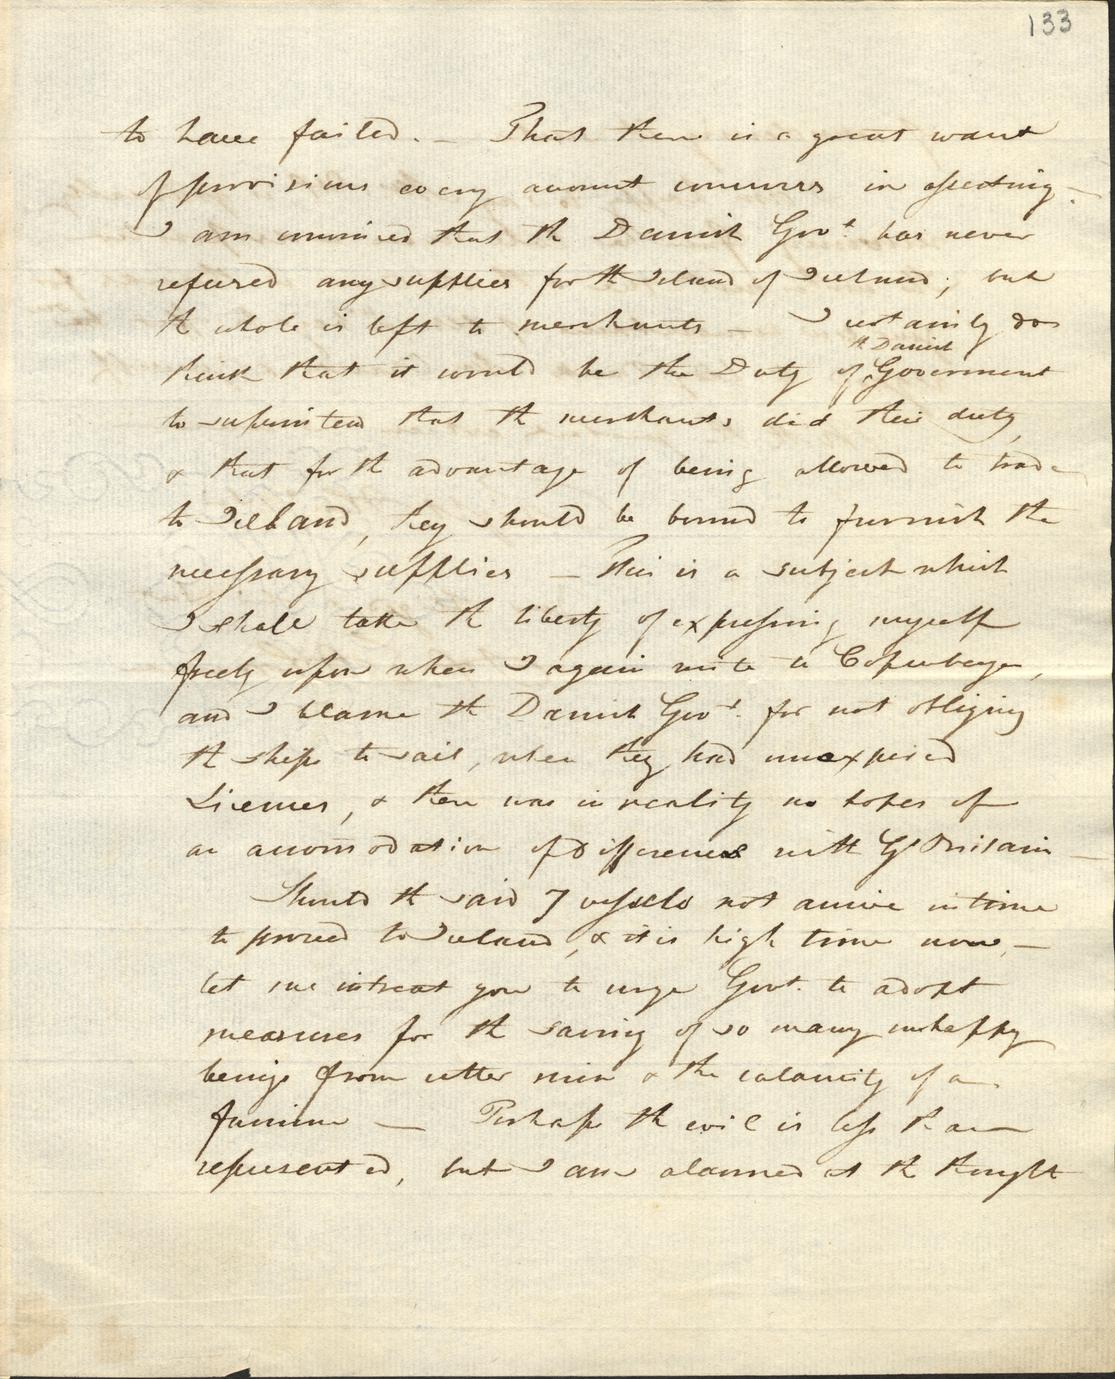 133
to have failed. — That there is a great want
of provisions every account concurrs in asserting. —
I am convinced that the Danish Govt. has never
refused any supplies for the Island of Iceland; but
the whole is left to merchants — I certainly do
think that it would be the Duty of ^the Danish Government
to superintend that the merchants did their duty,
& that for the advantage of being allowed to trade
to Iceland, they should be bound to furnish the
necessary supplies — This is a subject which
I shall take the liberty of expressing myself
freely upon when I again write to Copenhagen,
and I blame the Danish Govt. for not obliging
the ships to sail, when they had unexpired
Licences, & there was in reality no hopes of
an accomodation of differences with Gt Britain —
Should the said 7 vessels not arrive in time
to proceed to Iceland, & it is high time now, —
let me intreat you to urge Govt. to adopt
measures for the saving of so many unhappy
beings from utter ruin & the calamity of a
famine — Perhaps the evil is less than
represented, but I am alarmed at the thought